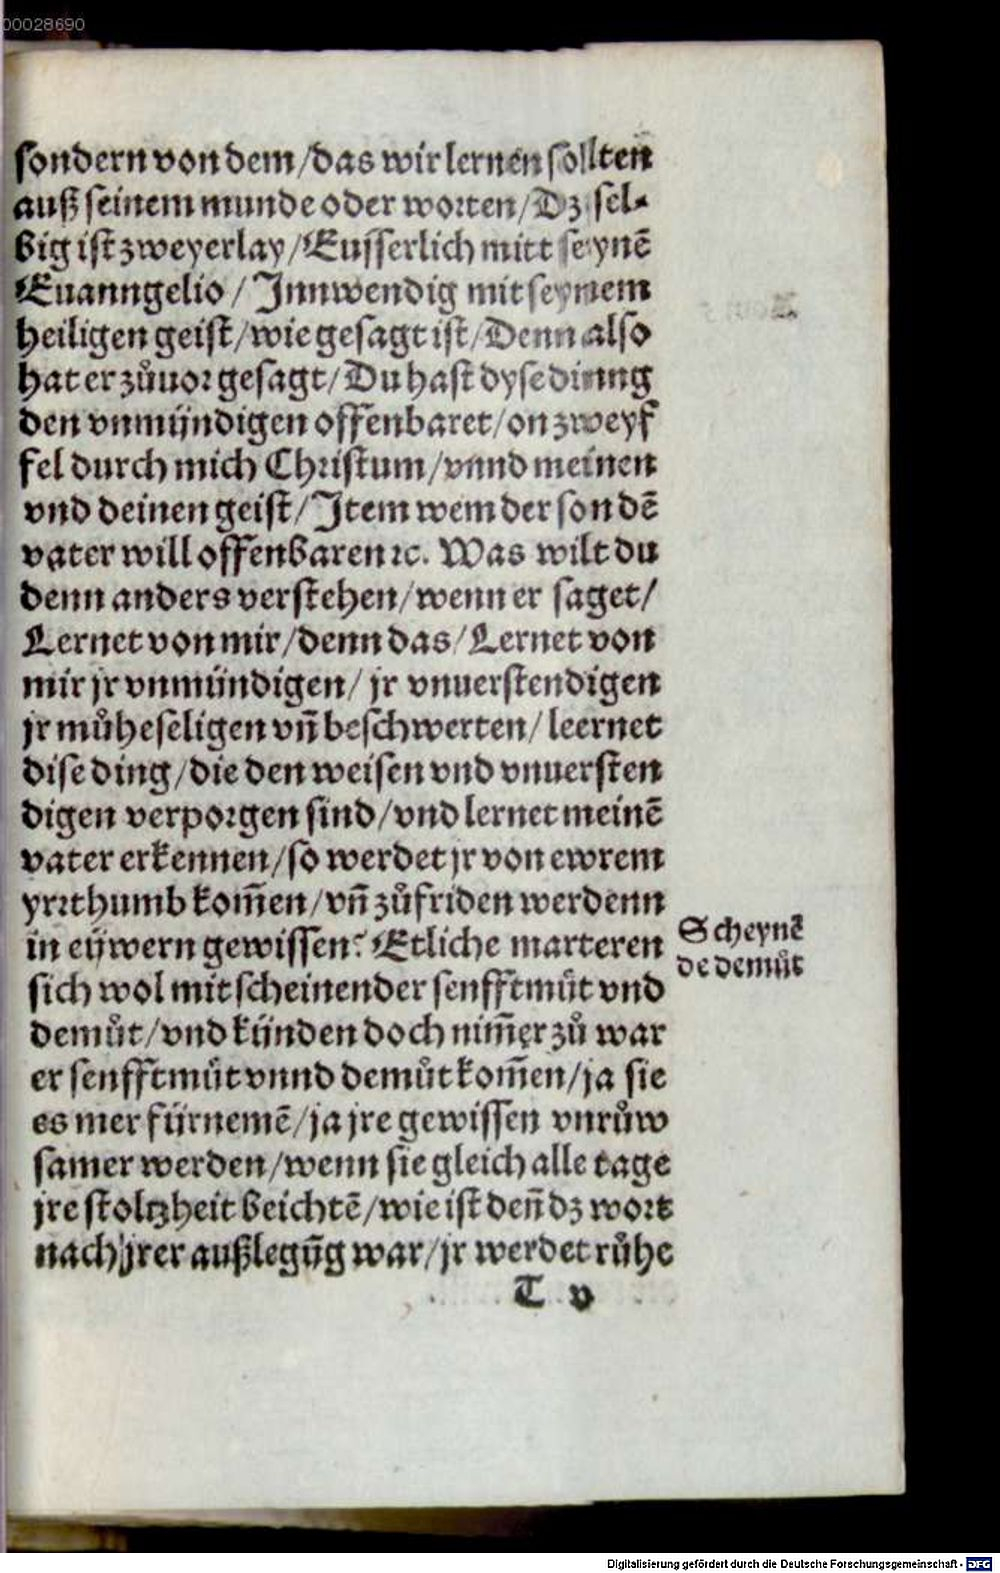 00028690
sondern von dem/das wir lernen sollten
auß seinem munde oder worten/Dz sel-
big ist zweyerlay/Eusserlich mitt seynē
Euanngelio/ Innwendig mit seynem
heiligen geist/wie gesagt ist/Denn also
hat er zůuor gesagt/Du hast dyse dinng
den vnmündigen offenbaret/on zweyf
fel durch mich Christum/vnnd meinen
vnd deinen geist/Item wem der son dē
vater will offenbaren ꝛc. Was wilt du
denn anders verstehen/wenn er saget/
Lernet von mir/denn das/Lernet von
mir jr vnmündigen/ jr vnuerstendigen
jr můheseligen vñ beschwerten/leernet
dise ding/die den weisen vnd vnuersten
digen verporgen sind/vnd lernet meinē
vater erkennen/so werdet jr von ewrem
yrrthumb kom̃en/vñ zůfriden werdenn
in eüwern gewissen? Etliche marteren
sich wol mit scheinender senfftmůt vnd
demůt/vnd künden doch nim̃er zů war
er senfftmůt vnnd demůt kom̃en/ja sie
es mer fürnemē/ja jre gewissen vnrůw
samer werden/wenn sie gleich alle tage
jre stoltzheit beichtē/wie ist deñ dz wort
nach jrer außlegũg war/jr werdet růhe
T v
Scheynē
de demůt
Digitalisierung gefördert durch die Deutsche Forschungsgemeinschaft - DFG